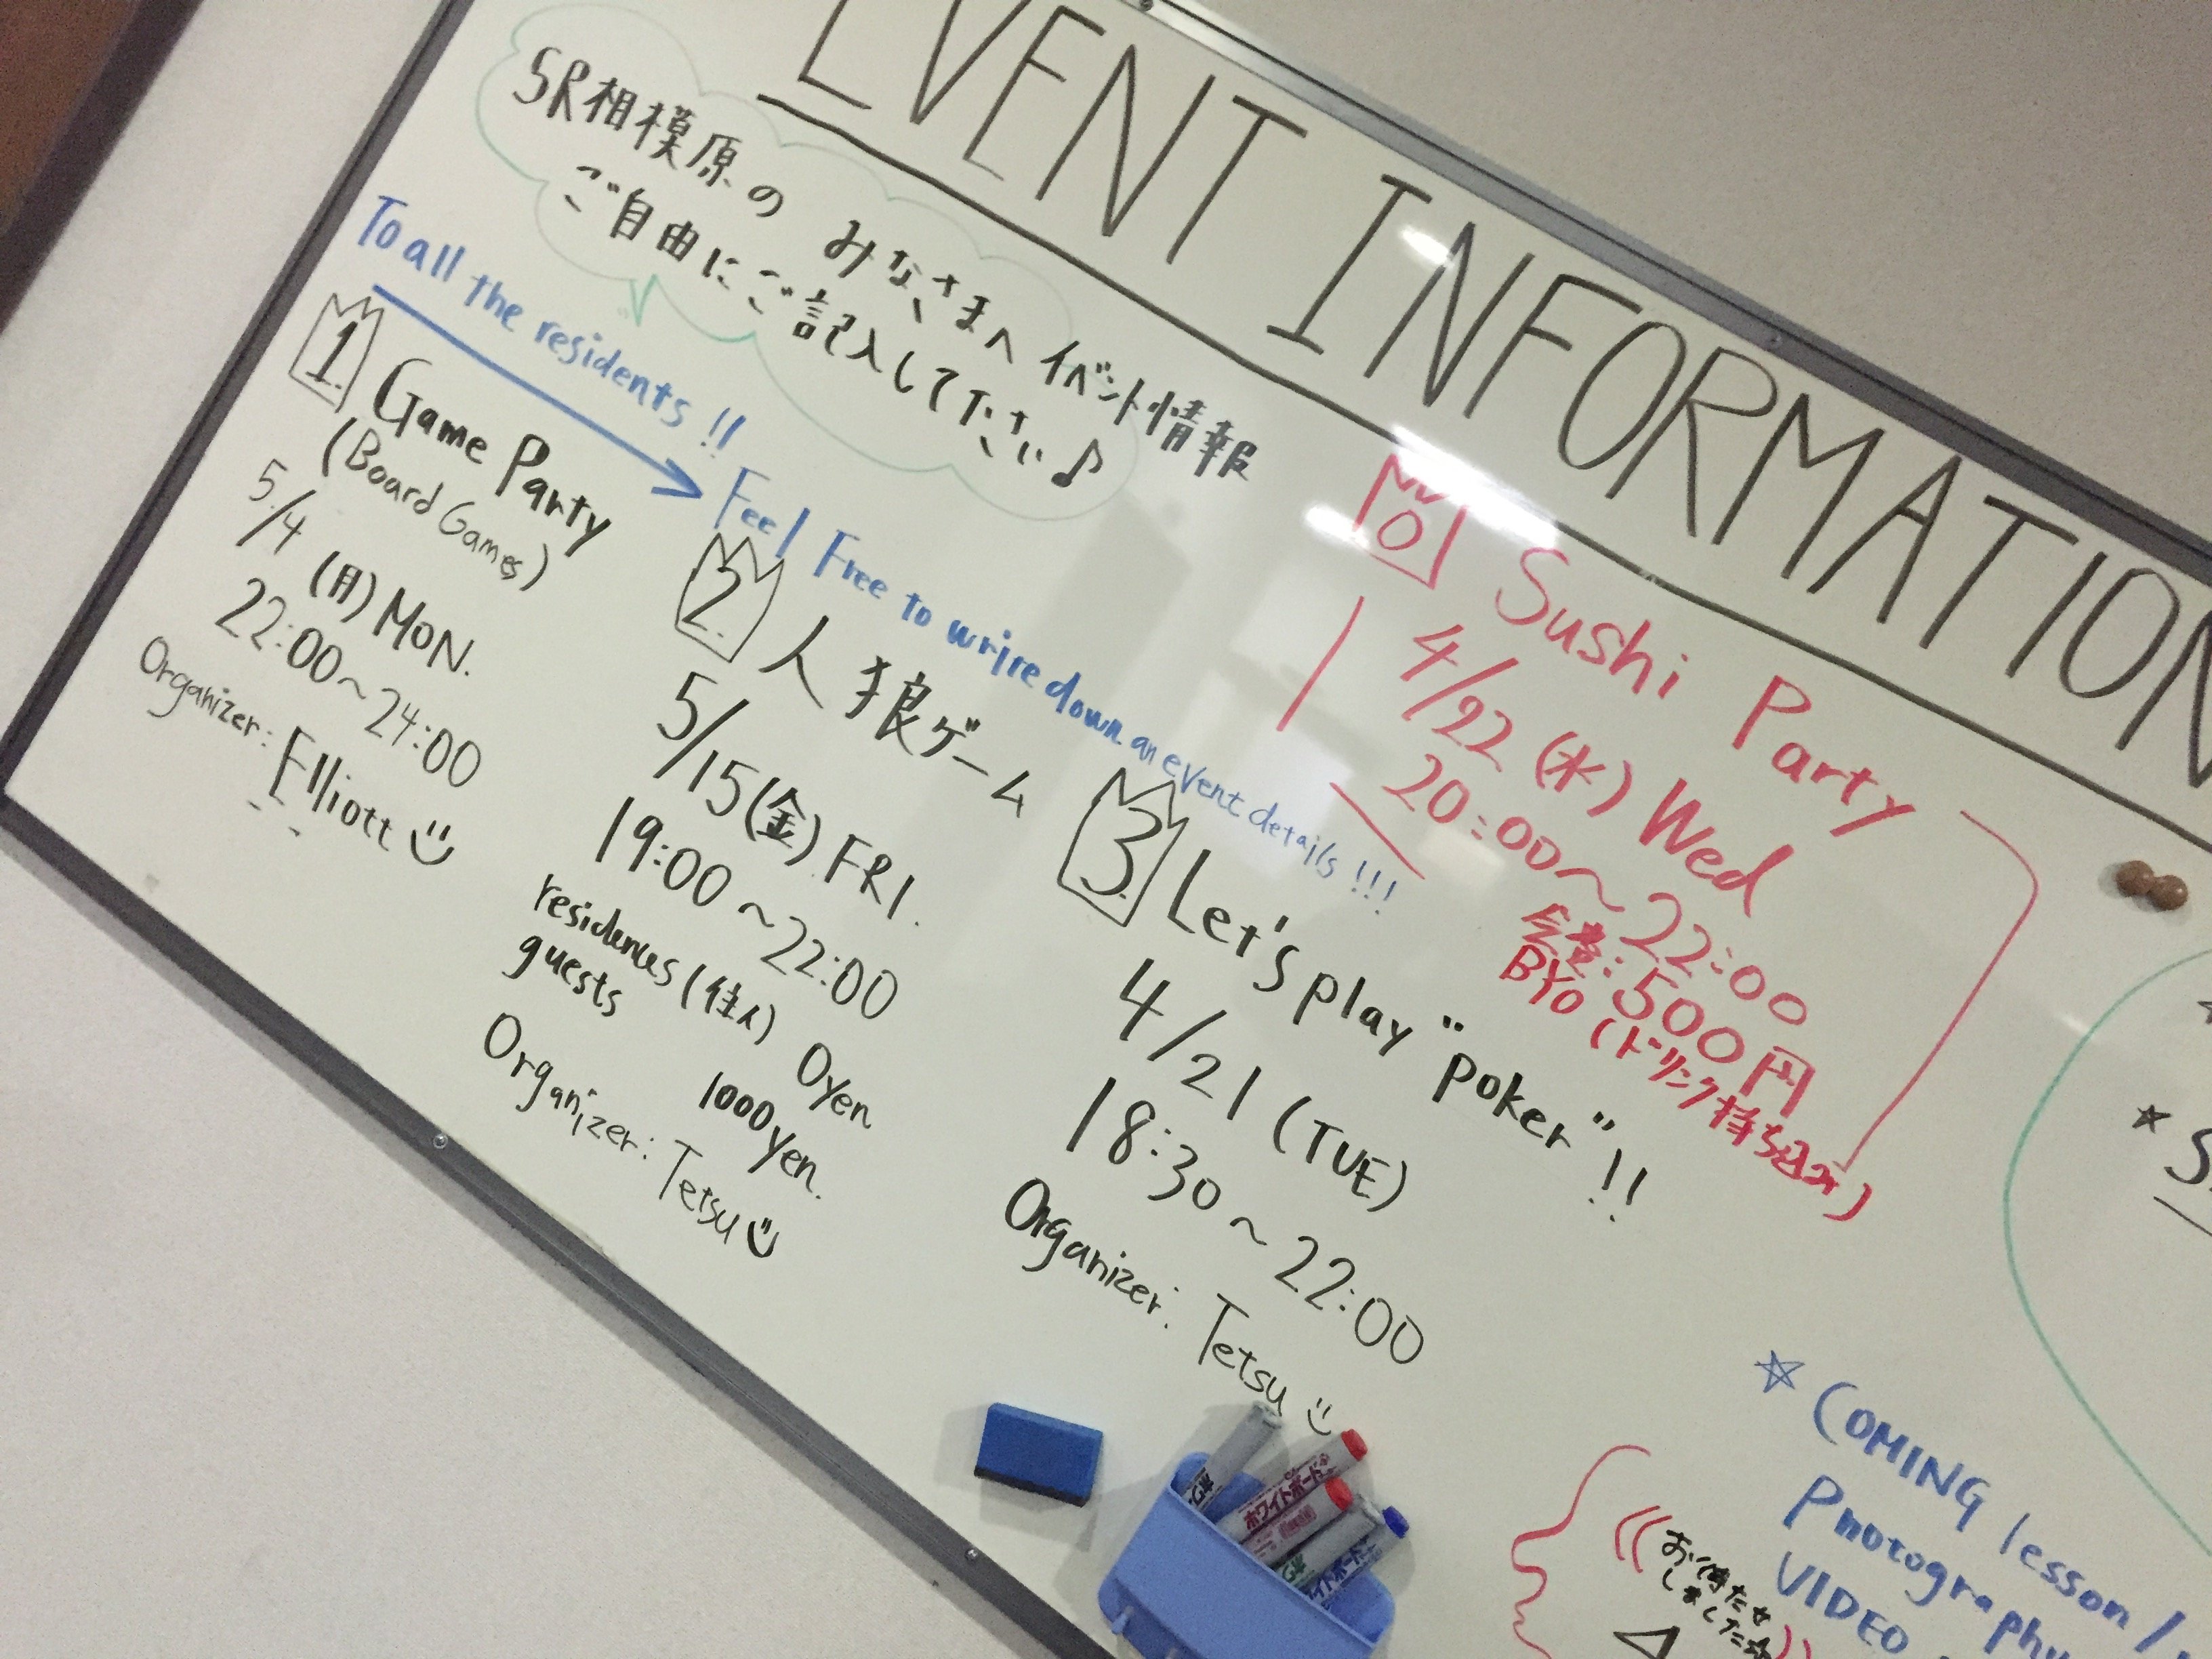 EVENT INFORMATION
SR相模原の みなさまへ イベント情報
ご自由にご記入して下さい♪
To all the residents!!
Feel Free to wrire down an event details!!!
1.
Game Party
(Board Games)
5/4 (月) MON.
22:00~24:00
Organizer: Elliott
2.
人狼ゲーム
5/15(金) FRI.
19:00~22:00
residences (住人) 0yen
guests 1000yen.
Organizer: Tetsu
3.
Let's play "poker"!!
4/21 (TUE)
18:30~22:00
Organizer: Tetsu
0
Sushi Party
4/22 (水) Wed
20:00~22:00
会費: 500円
BYO (ドリンク持ち込み)
COMING lesson/
Photography
VIDEO
おまたせ
しました
ホワイトボード